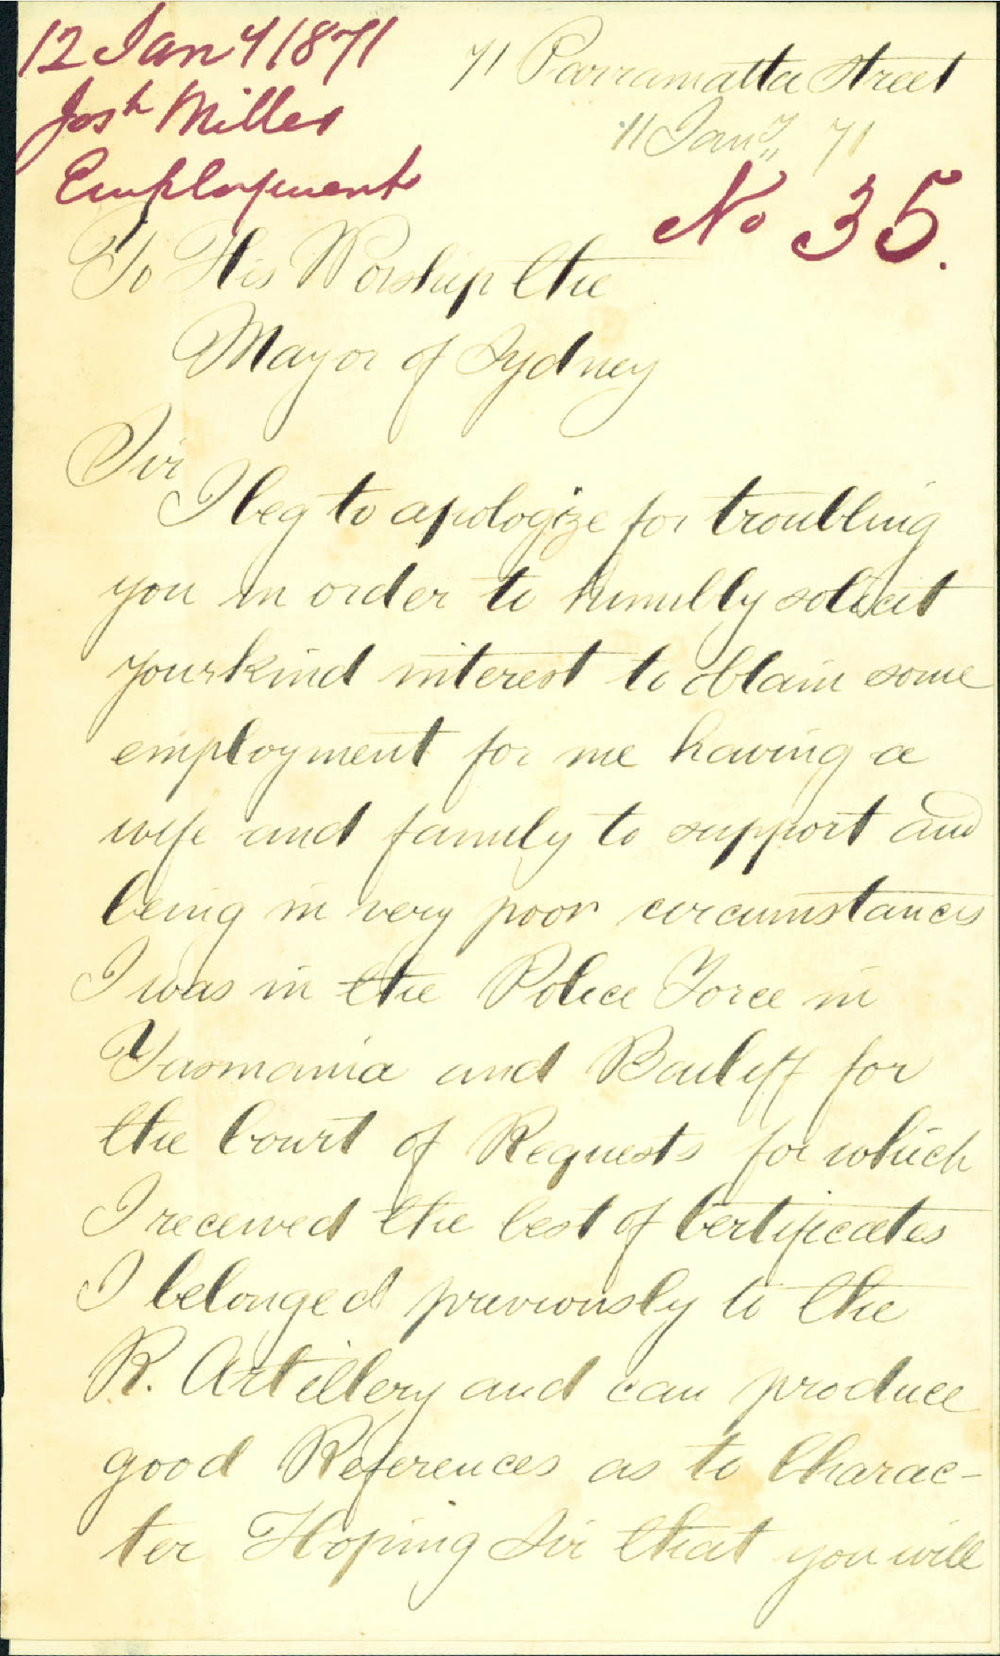 12 Jany 1871
Josh Miller
Employment
71 Parramatta Street
11 Jany 71
No 35.
To His Worship the
Mayor of Sydney
Sir
I beg to apologize for troubling
you in order to humbly solicit
your kind interest to obtain some
employment for me having a
wife and family to support and
being in very poor circumstances
I was in the Police Force in
Tasmania and Bailiff for
the Court of Requests for which
I received the best of Certificates
I belonged previously to the
R. Artillery and can produce
good References as to Charac-
ter Hoping Sir that you will